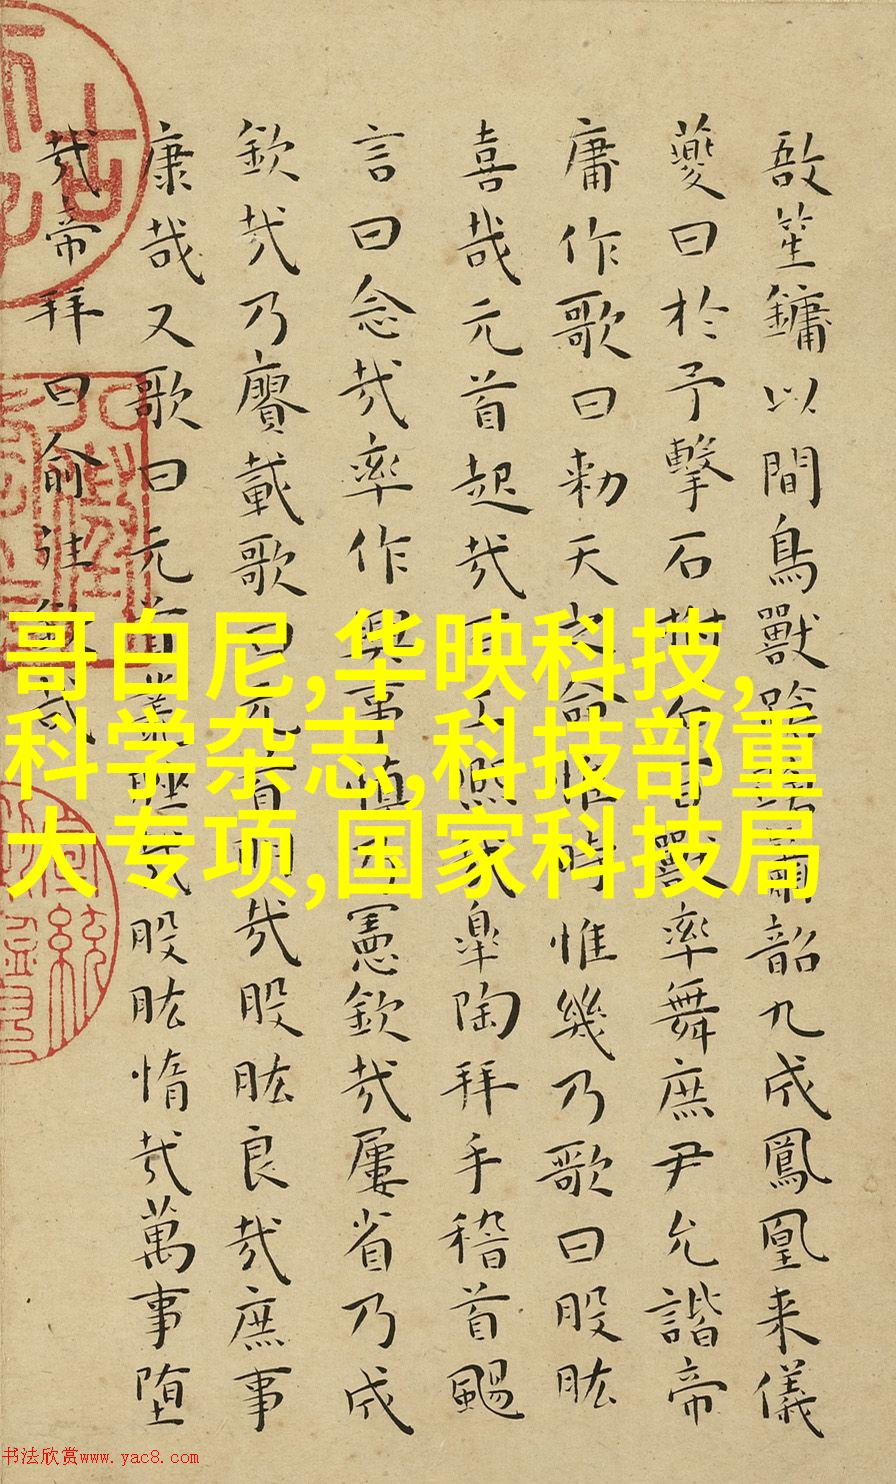 敔笙鏞以間鳥獸蹌蹌蕭韶九成鳳凰来儀
夔曰於予擊石拊石百獸率舞庶尹允諧帝
庸作歌曰勑天之命惟時惟幾乃歌曰股肱
喜哉元首起哉百工熙哉皋陶拜手稽首颺
言曰念哉率作興事慎乃憲欽哉屢省乃成
欽哉乃賡載歌曰元首明哉股肱良哉庶事
康哉又歌曰元首叢脞哉股肱惰哉萬事堕
哉帝拜曰俞往欽哉
哥白尼,华映科技,
科学杂志,科技部重
大专项,国家科技局
书法欣赏www.yac8.com